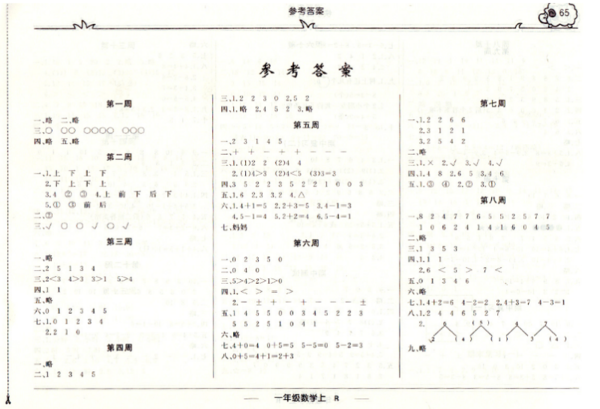 参考答案
65
参考答案
第一周
一、略 二、略
三、○ ○○ ○○○○ ○○○
四、略 五、略
第二周
一、1.上 下 上 下
2.下 上 上 下
3.4 ② ③ 4.上 前 下 后 下
5.① ③ 前 后
二、②
三、√ ○ ○ √ ○ √
第三周
一、略
二、2 5 1 3 4
三、2<3 4>3 3>1 5>4
四、1 1
五、略
六、0 1 2 3 4 5
七、1.0 1 2 3 4
2.2 1 0
第四周
一、略
二、1 2 3 4 5
三、1.2 2 3 0 2.5 2
四、1.略 2.4 5 2 3.略
第五周
一、2 3 1 4 5
二、+ + - + + - - -
三、1.(1)2 2 (2)4 4
2.(1)4>3 (2)4<5 (3)3=3
四、3 5 2 2 3 5 2 2 1 0 0 3
五、1.6 2.3 3.2 4.△
六、1.4+1=5 2.2+3=5 3.4-1=3
4.5-1=4 5.2+2=4 6.5-4=1
七、妈妈
第六周
一、0 2 3 5 0
二、0 4 0
三、5>4>2>1>0
四、1.< > = >
2.- ± + - + - - - ±
五、1 4 5 5 0 0 3 4 5 2 2 3
5 5 2 5 1 0 4 1
六、略
七、4+0=4 0+5=5 5-5=0 5-2=3
八、0+5=4+1=2+3
第七周
一、1.2 2 6 6
2.3 1 2 1
3.2 5 4 2
二、略
三、1.× 2.√ 3.√ 4.√
四、1.4 8 2.6 5 3.4 6
五、1.③ ④ 2.② 3.①
第八周
一、8 2 4 7 7 6 5 5 2 5 7 7
二、略
三、1 3 5 3
四、1.1 1
2.6 < 5 > 7 <
五、0 1 3 4 6
六、略
七、1.4+2=6 4-2=2 2.4+3=7 4-3=1
八、1.2 4 4 6 5 2 7
2.
九、略
一年级数学上 R